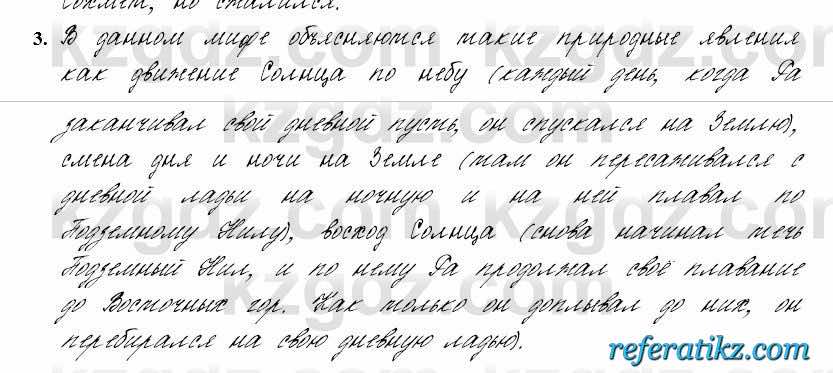 Сохмет, но сжалился.
3. В данном мифе объясняются такие природные явления
как движение Солнца по небу (каждый день, когда Ра
заканчивал свой дневной пусть, он спускался на Землю),
смена дня и ночи на Земле (там он пересаживался с
дневной ладьи на ночную и на ней плавал по
Подземному Нилу), восход Солнца (снова начинал течь
Подземный Нил, и по нему Ра продолжал своё плавание
до Восточных гор. Как только он доплывал до них, он
перебирался на свою дневную ладью).
referatikz.com